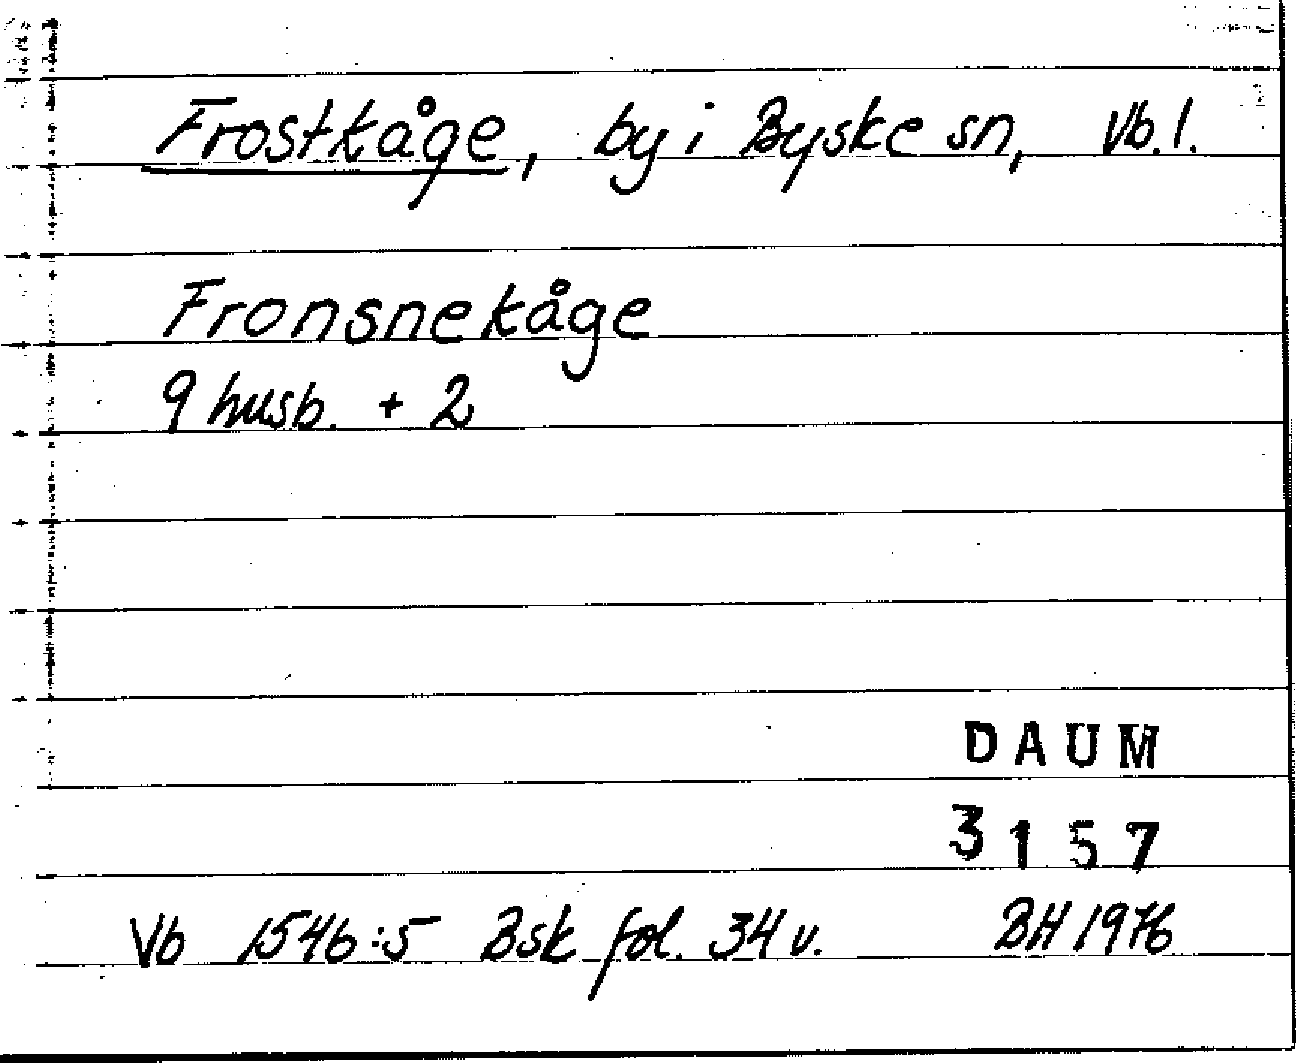 Frostkåge, by i Byske sn, Vb. l.
Fronsnekåge
9 husb. + 2
DAUM
3157
Vb 1546:5 Bsk fol. 34 v. BH 1976